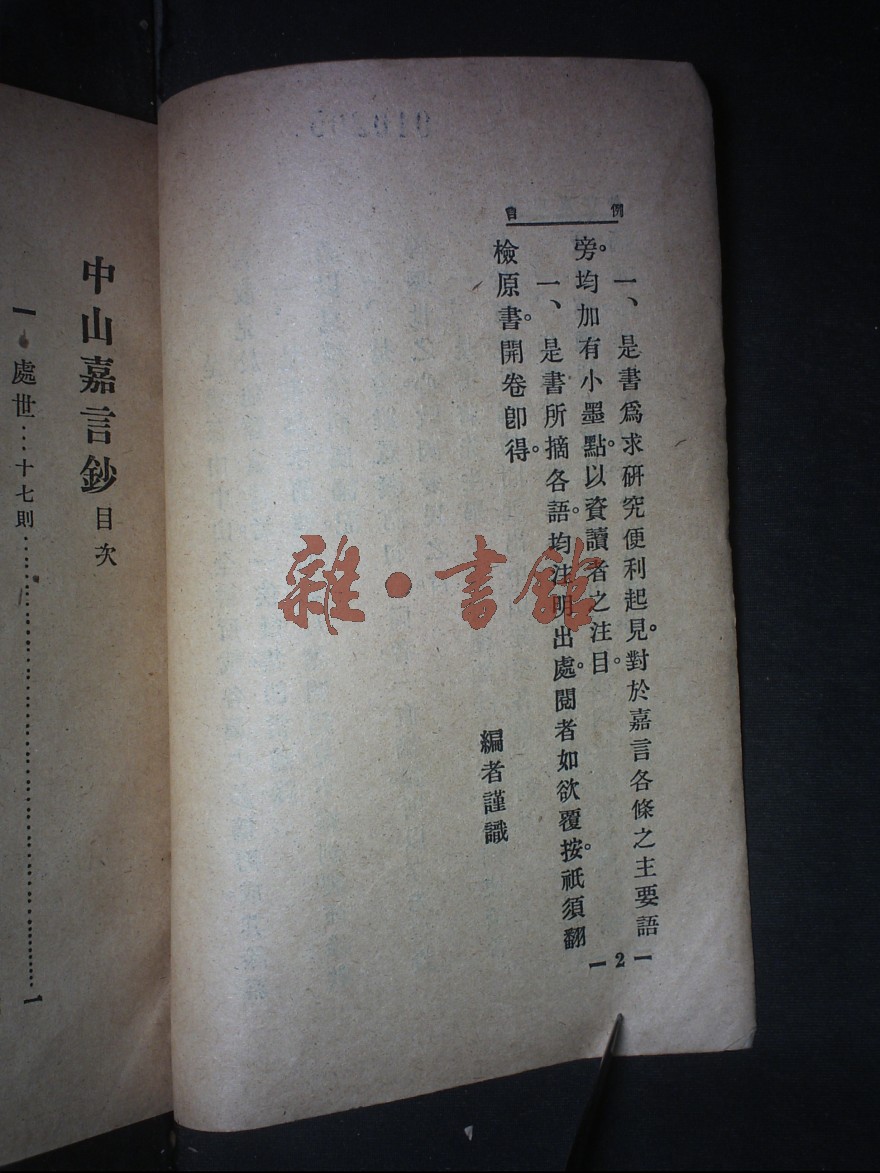 例言
一、是書爲求研究便利起見。對於嘉言各條之主要語
旁。均加有小墨點。以資讀者之注目。
一、是書所摘各語。均注明出處。閱者如欲覆按。祇須翻
檢原書。開卷卽得。
編者謹識
— 2 —
中山嘉言鈔 目次
一 處世…十七則……………………………一
雜·書館